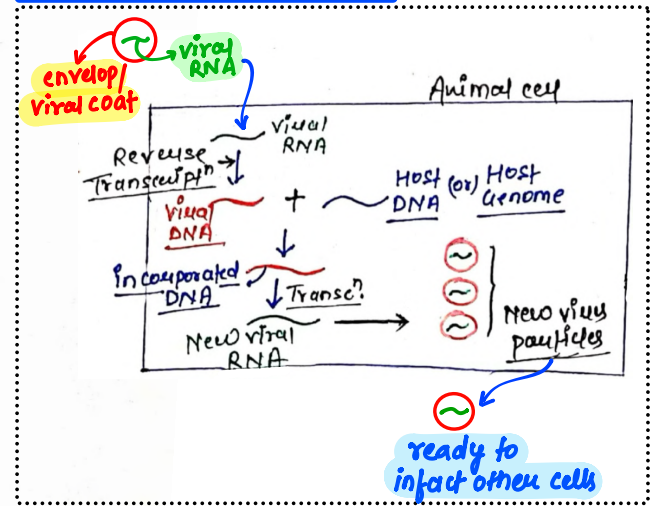 envelop/
viral coat
viral
RNA
Animal cell
viral
RNA
Reverse
Transcriptⁿ
viral
DNA
+
Host
DNA
(or)
Host
Genome
incorporated
DNA
Transcⁿ.
New viral
RNA
New virus
particles
ready to
infact other cells